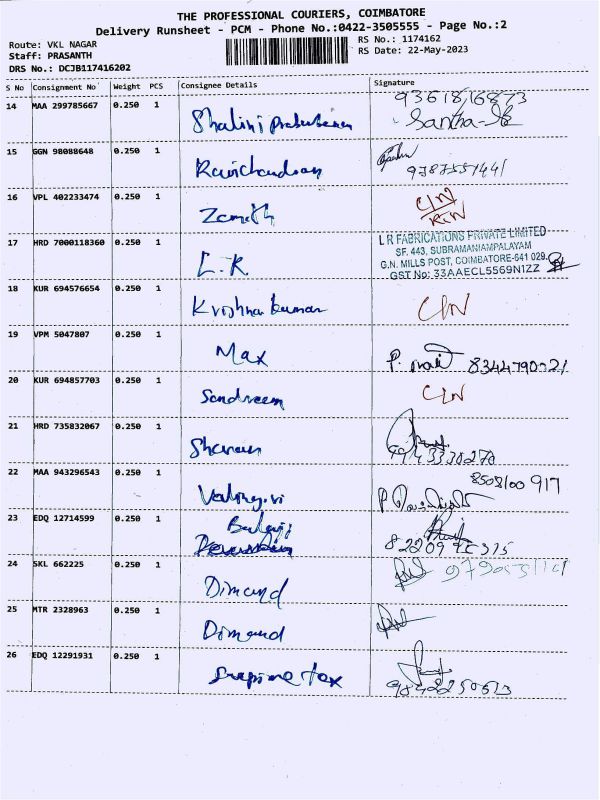 THE PROFESSIONAL COURIERS, COIMBATORE
Delivery Runsheet - PCM - Phone No.:0422-3505555 - Page No.:2
Route: VKL NAGAR
RS No.: 1174162
Staff: PRASANTH
RS Date: 22-May-2023
DRS No.: DCJB117416202
S No Consignment No Weight PCS Consignee Details Signature
14 MAA 299785667 0.250 1 Shalini 9361816873
Santha
15 GGN 98088648 0.250 1 Ravichandran
16 VPL 402233474 0.250 1 Zenith CIN
RCN
17 HRD 7000118360 0.250 1 L.R. L R FABRICATIONS PRIVATE LIMITED
SF. 443, SUBRAMANIAMPALAYAM
G.N. MILLS POST, COIMBATORE-641 029.
GST No: 33AAECL5569N1ZZ
18 KUR 694576654 0.250 1 Krishna kumar CIN
19 VPM 5047807 0.250 1 Max P. 8344790021
20 KUR 694857703 0.250 1 Sandreem CIN
21 HRD 735832067 0.250 1 Sharan 9943330270
22 MAA 943296543 0.250 1 8508100917
P
23 EDQ 12714599 0.250 1 Balaji
24 SKL 662225 0.250 1 Dimand
25 MTR 2328963 0.250 1 Dimand
26 EDQ 12291931 0.250 1 Suprime tex 9842250513